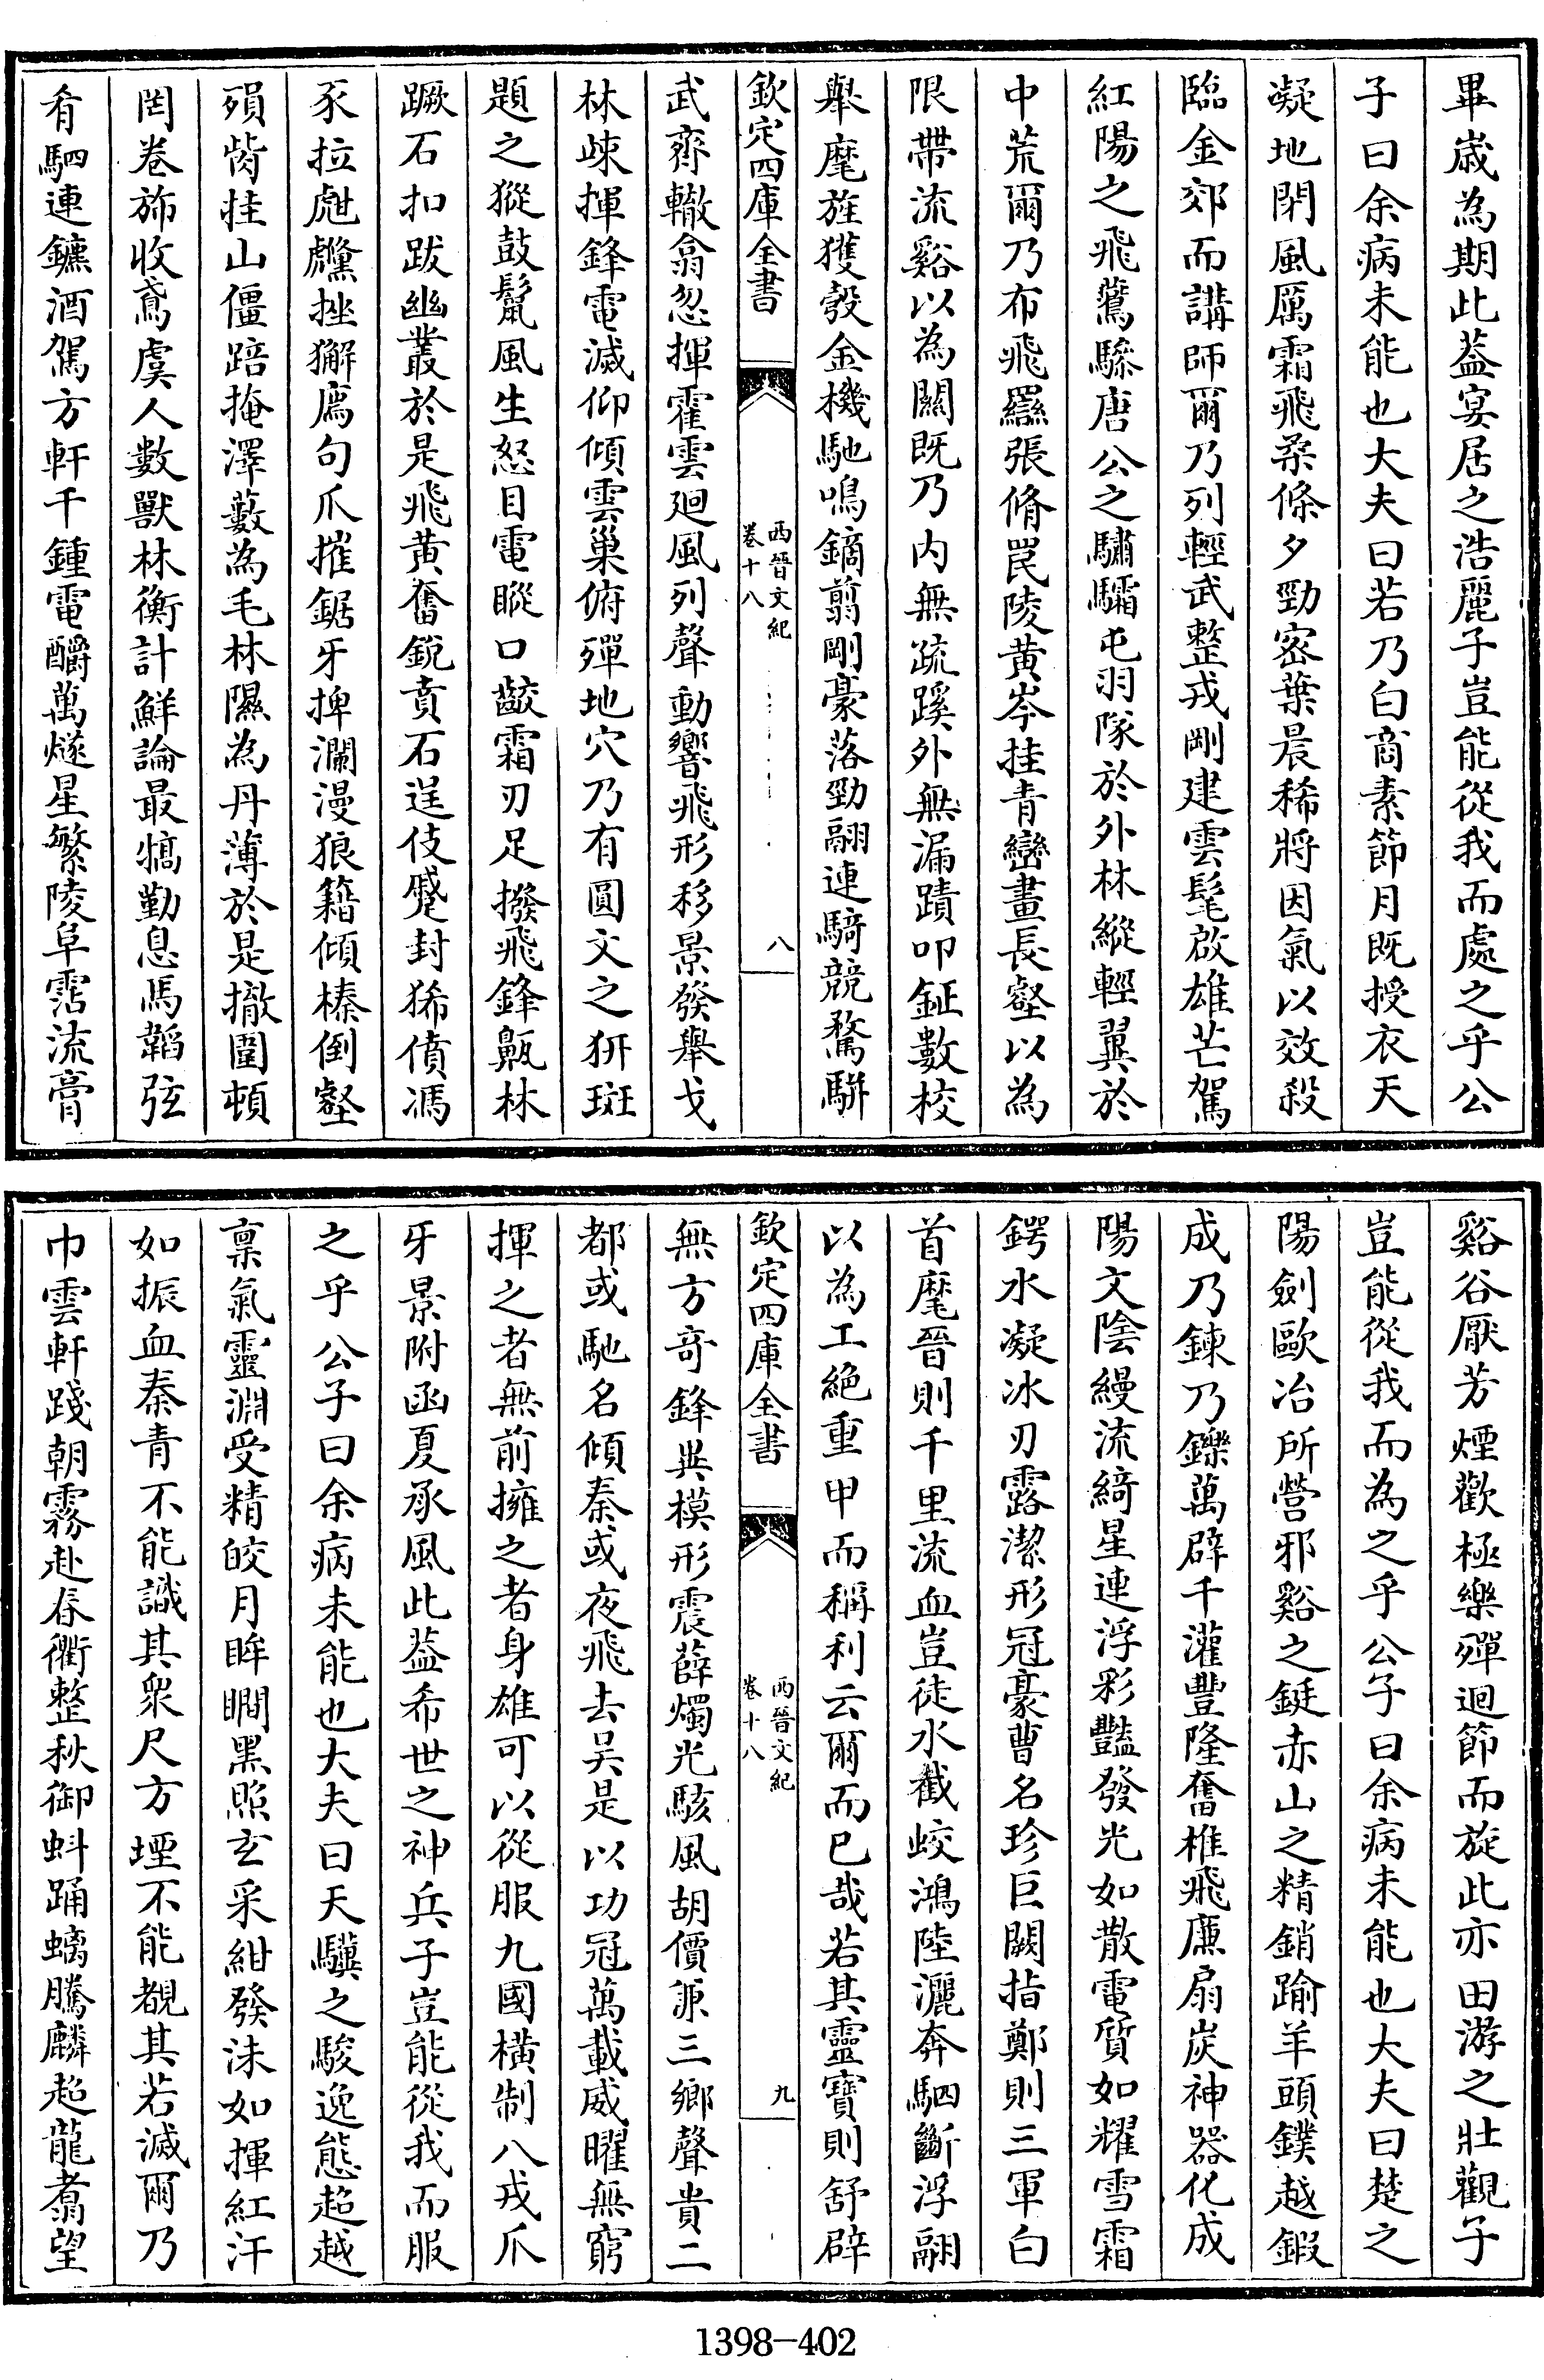 畢歳為期此葢宴居之浩麗子豈能從我而處之乎公
子曰余病未能也大夫曰若乃白商素節月既授衣天
凝地閉風厲霜飛柔條夕勁密葉晨稀將因氣以效殺
臨金郊而講師爾乃列輕武整戎剛建雲髦啟雄芒駕
紅陽之飛鷰驂唐公之驌驦屯羽隊於外林縱輕翼於
中荒爾乃布飛羉張脩罠陵黄岑挂青巒畫長壑以為
限帶流谿以為關既乃内無疏蹊外無漏蹟叩鉦數校
舉麾旌獲彀金機馳鳴鏑剪剛豪落勁翮連騎競騖駢
欽定四庫全書
西晉文紀
卷十八
八
武齊轍翕忽揮霍雲廻風列聲動響飛形移景發舉戈
林竦揮鋒電滅仰傾雲巢俯殫地穴乃有圓文之豜斑
題之豵鼓鬛風生怒目電瞛口齩霜刃足撥飛鋒齀林
蹶石扣跋幽叢於是飛黄奮銳賁石逞伎蹙封狶僨馮
豕拉甝虪挫獬廌句爪摧鋸牙捭瀾漫狼籍傾榛倒壑
殞胔挂山僵踣掩澤藪為毛林隰為丹薄於是撤圍頓
罔卷斾收鳶虞人數獸林衡計鮮論最犒勤息馬韜弦
肴駟連鑣酒駕方軒千鍾電釂萬燧星繁陵阜霑流膏
谿谷厭芳煙歡極樂殫迴節而旋此亦田游之壯觀子
豈能從我而為之乎公子曰余病未能也大夫曰楚之
陽劍歐冶所營邪谿之鋌赤山之精銷踰羊頭鏷越鍛
成乃鍊乃鑠萬辟千灌豐隆奮椎飛廉扇炭神器化成
陽文陰縵流綺星連浮彩豔發光如散電質如耀雪霜
鍔水凝冰刃露潔形冠豪曹名珍巨闕指鄭則三軍白
首麾晉則千里流血豈徒水截蛟鴻陸灑奔駟斷浮翮
以為工絕重甲而稱利云爾而已哉若其靈寶則舒辟
欽定四庫全書
西晉文紀
卷十八
九
無方竒鋒異模形震薛燭光駭風胡價兼三鄉聲貴二
都或馳名傾秦或夜飛去吳是以功冠萬載威曜無窮
揮之者無前擁之者身雄可以從服九國横制八戎爪
牙景附函夏承風此葢希世之神兵子豈能從我而服
之乎公子曰余病未能也大夫曰天驥之駿逸態超越
禀氣靈淵受精皎月眸瞷黑照玄采紺發沬如揮紅汗
如振血秦青不能識其衆尺方堙不能覩其若滅爾乃
巾雲軒踐朝霧赴春衢整秋御蚪踊螭騰麟超龍翥望
1398-402